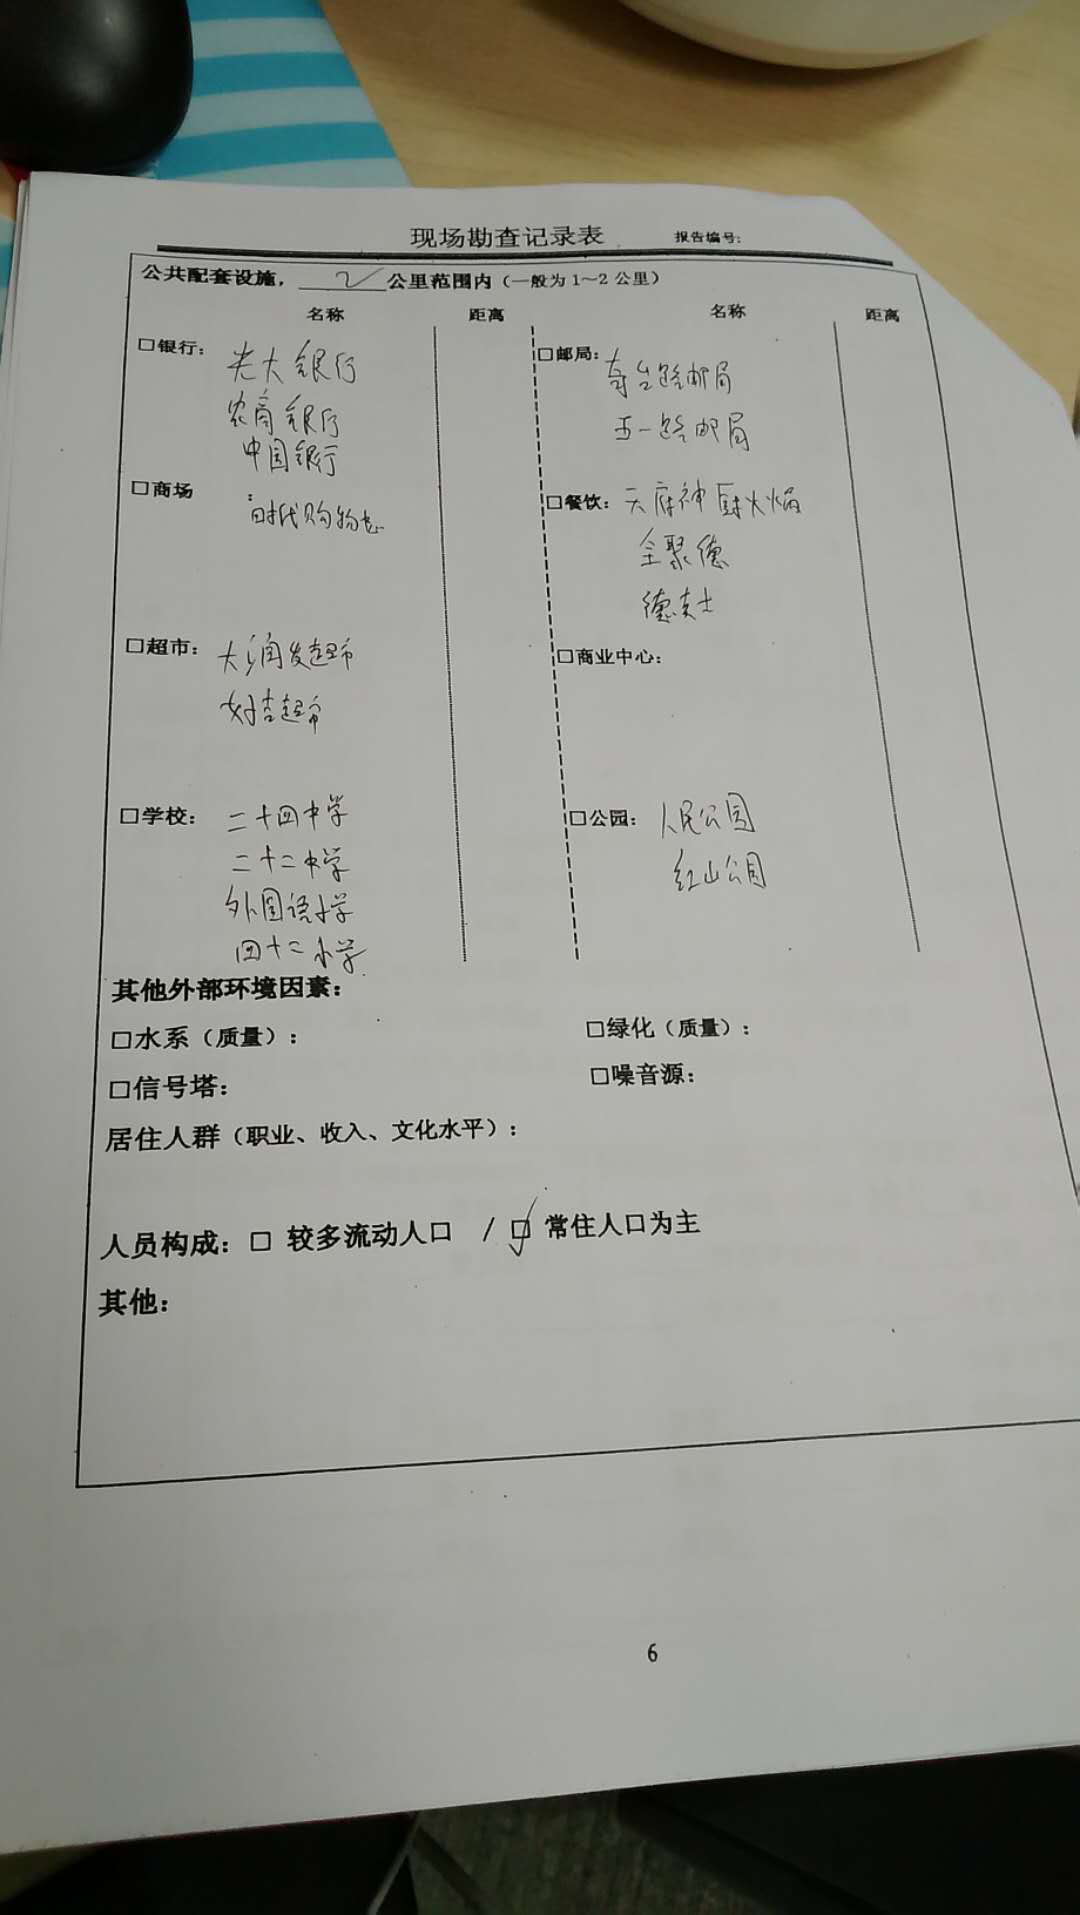 现场勘查记录表 报告编号:
公共配套设施，2公里范围内（一般为1～2公里）
名称 距离 名称 距离
□银行: 光大银行
农商银行
中国银行
□邮局: 奇台路邮局
五一路邮局
□商场: 时代购物
□餐饮: 天府神厨火焰
全聚德
德克士
□超市: 大润发超市
好吉超市
□商业中心:
□学校: 二十四中学
二十二中学
外国语小学
四十二小学
□公园: 人民公园
红山公园
其他外部环境因素:
□水系（质量）: □绿化（质量）:
□信号塔: □噪音源:
居住人群（职业、收入、文化水平）:
人员构成: □ 较多流动人口 / ☑ 常住人口为主
其他:
6